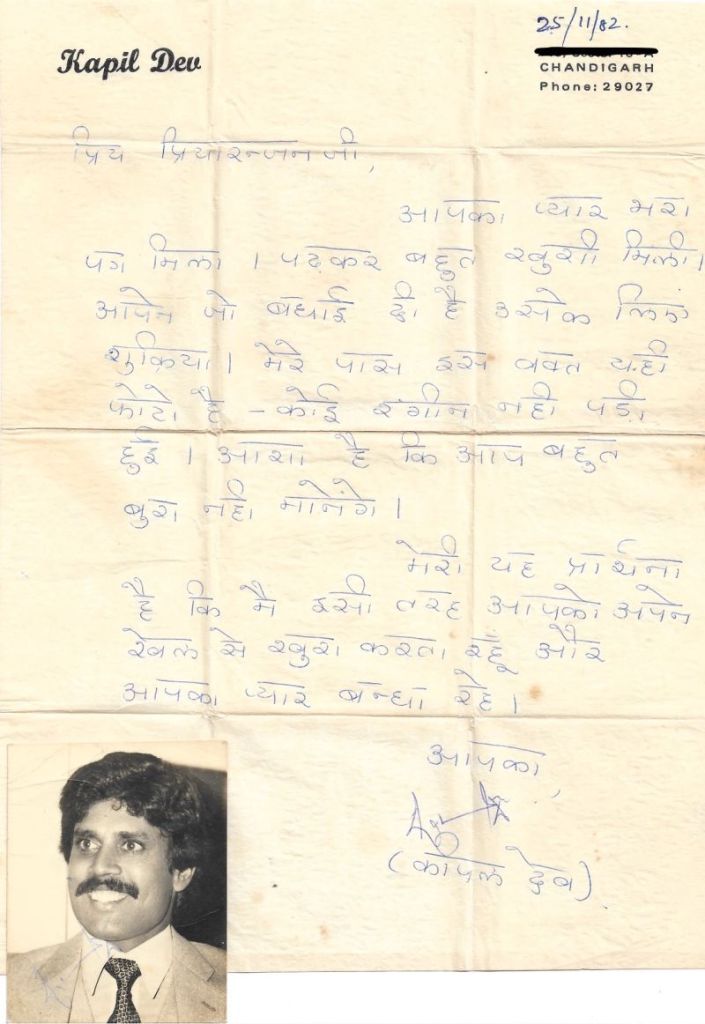 25/11/82.
Kapil Dev
CHANDIGARH
Phone: 29027
प्रिय प्रियारन्जन जी,
आपका प्यार भरा
पत्र मिला । पढ़कर बहुत खुशी मिली।
आपने जो बधाई दी है उसके लिए
शुक्रिया। मेरे पास इस वक्त यही
फोटो है - कोई रंगीन नही पड़ी
हुई । आशा है कि आप बहुत
बुरा नही मानेंगे ।
मेरी यह प्रार्थना
है कि मै इसी तरह आपको अपने
खेल से खुश करता रहूँ और
आपका प्यार बन्धा रहे ।
आपका,
(कपिल देव)